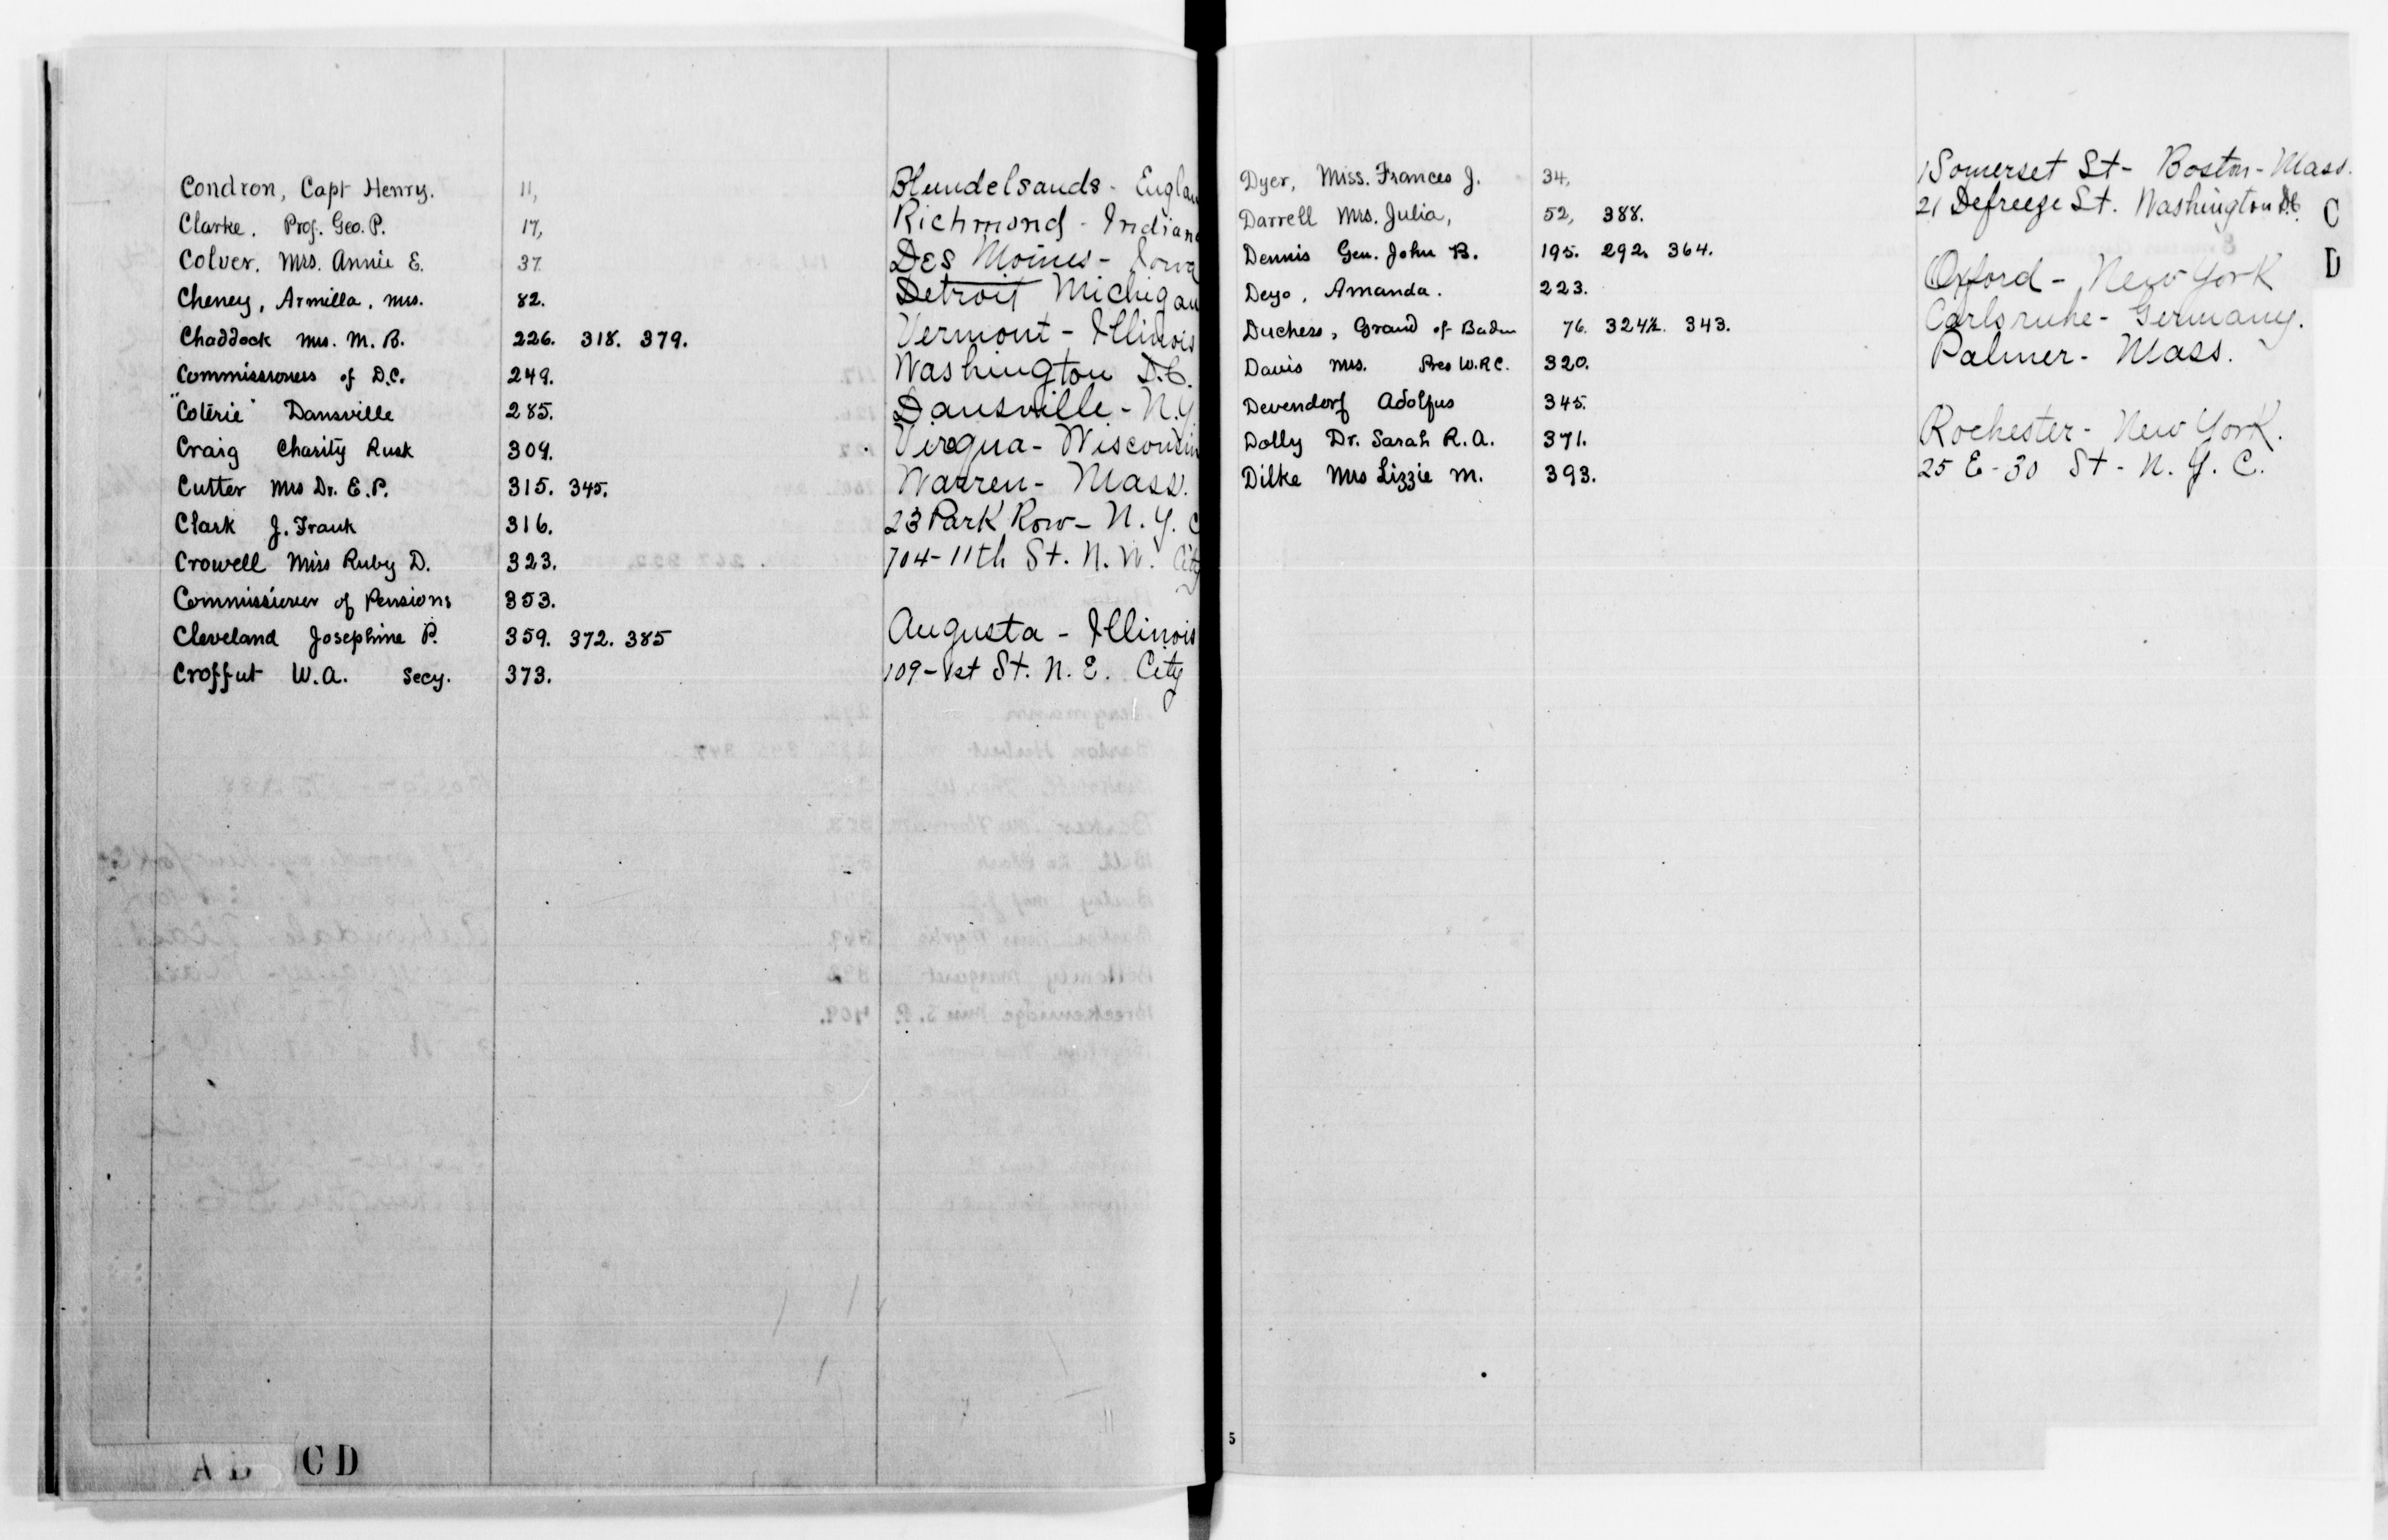 Condron, Capt Henry. 11, Blundelsands - Englan
Clarke. Prof. Geo. P. 17, Richmond - Indiana
Colver. Mrs. Annie E. 37. Des Moines - Iowa
Cheney, Armilla, mrs. 82. Detroit Michigan
Chaddock mrs. M. B. 226. 318. 379. Vermont - Illinois
Commissioners of D.C. 249. Washington D.C.
"Coterie" Dansville 285. Dansville - N.Y.
Craig Charity Rusk 309. Viroqua - Wisconsin
Cutter Mrs Dr. E. P. 315. 345. Warren - Mass.
Clark J. Frank 316. 23 Park Row - N. Y. C
Crowell Miss Ruby D. 323. 704 - 11th St. N. W. City
Commissioner of Pensions 353.
Cleveland Josephine P. 359. 372. 385 Augusta - Illinois
Croffut W. A. Secy. 373. 109 - 1st St. N. E. City
A B C D
Dyer, Miss. Frances J. 34, 1 Somerset St - Boston - Mass.
Darrell Mrs. Julia, 52, 388. 21 Defreeze St. Washington D.C.
Dennis Gen. John B. 195. 292. 364.
Deyo, Amanda. 223. Oxford - New York
Duchess, Grand of Baden 76. 324½. 343. Carlsruhe - Germany.
Davis mrs. Pres W.R.C. 320. Palmer - Mass.
Devendorf Adolfus 345.
Dolly Dr. Sarah R. A. 371. Rochester - New York.
Dilke Mrs Lizzie M. 393. 25 E - 30 St - N. Y. C.
C
D
5